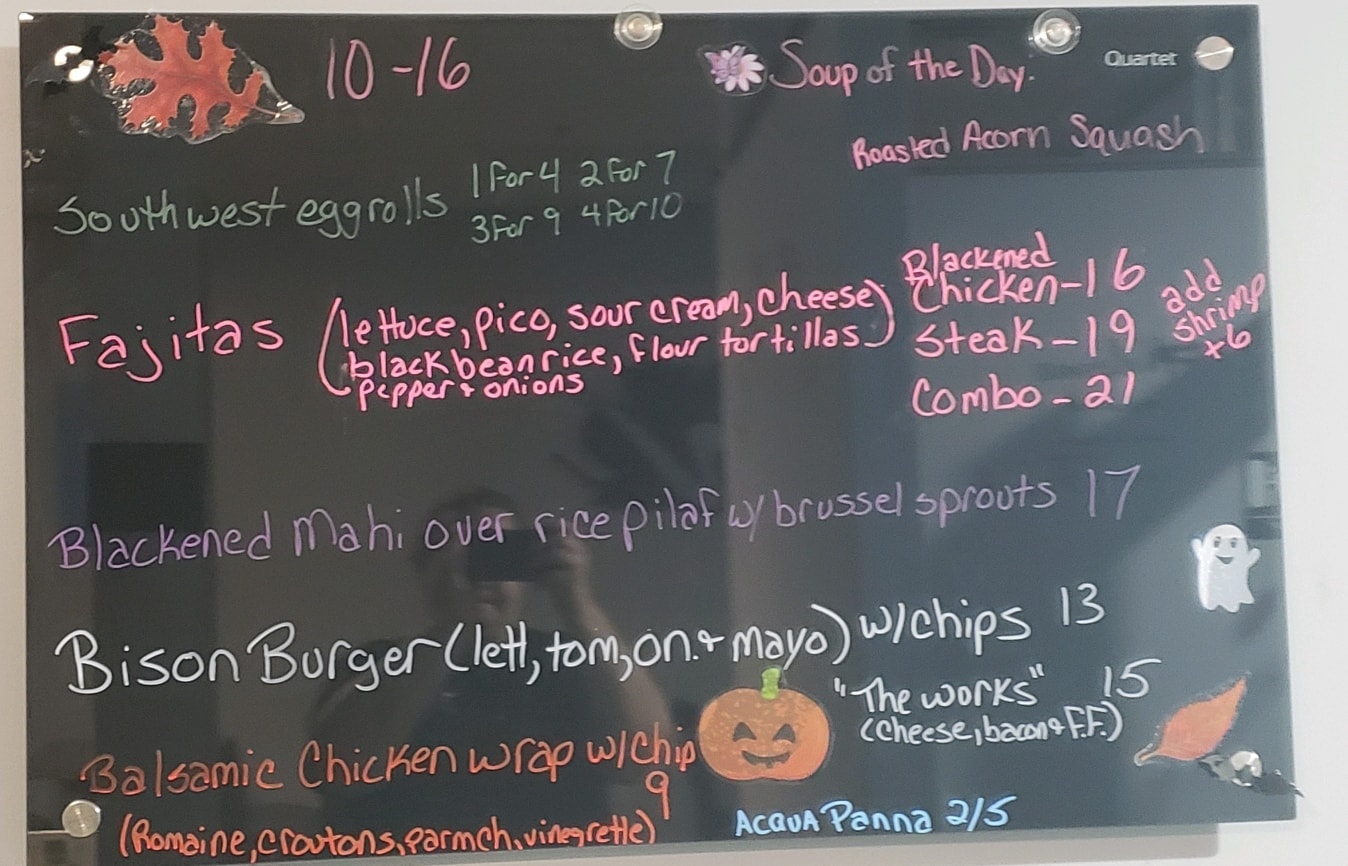 10-16
Quartet
Soup of the Day:
Roasted Acorn Squash
Southwest eggrolls 1 for 4 2 for 7
3 for 9 4 for 10
Fajitas (lettuce, pico, sour cream, cheese)
black bean rice, flour tortillas
pepper + onions
Blackened
Chicken-16
Steak-19
Combo-21
add
shrimp
x6
Blackened Mahi over rice pilaf w/ brussel sprouts 17
Bison Burger (lett, tom, on. + mayo) w/chips 13
"The works" 15
(cheese, bacon + F.F.)
Balsamic Chicken wrap w/Chip
9
(Romaine, croutons, parmch, vinegrette)
Acqua Panna 2/5